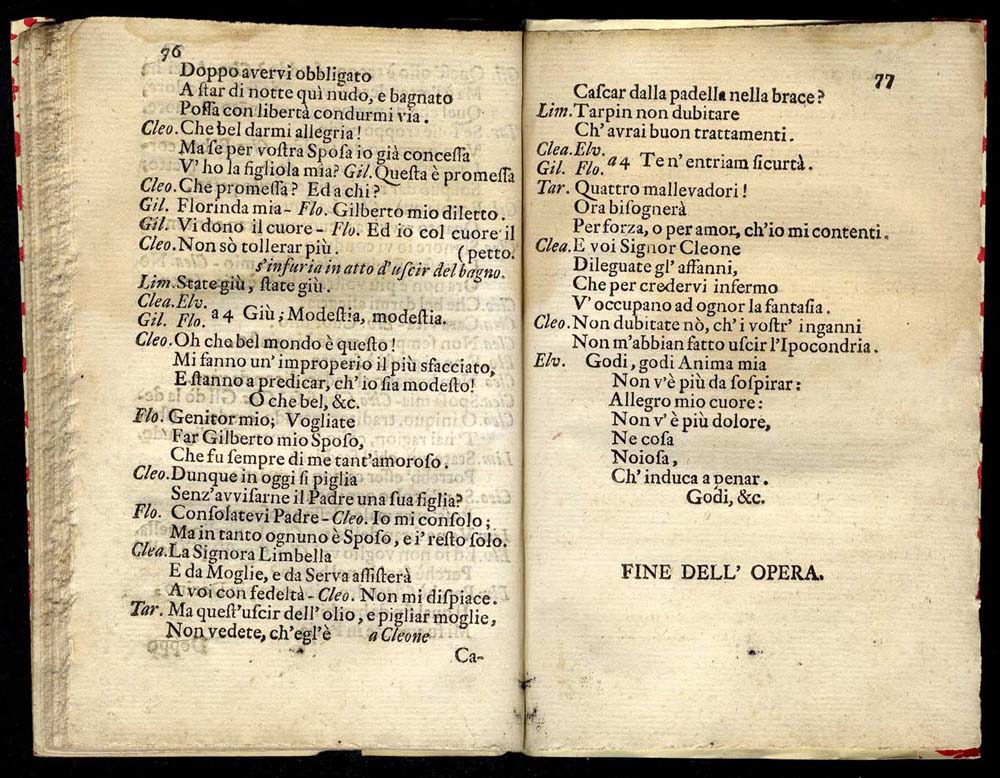 76
Doppo avervi obbligato
A ſtar di notte quì nudo, e bagnato
Poſſa con libertà condurmi via.
Cleo. Che bel darmi allegria!
Ma ſe per voſtra Spoſa io già conceſſa
V' ho la figliola mia? Gil. Queſta è promeſſa
Cleo. Che promeſſa? Ed a chi?
Gil. Florinda mia- Flo. Gilberto mio diletto.
Gil. Vi dono il cuore- Flo. Ed io col cuore il
Cleo. Non sò tollerar più. (petto.
s'infuria in atto d'uſcir del bagno.
Lim. State giù, ſtate giù.
Clea. Elv.
Gil. Flo. a 4 Giù; Modeſtia, modeſtia.
Cleo. Oh che bel mondo è queſto!
Mi fanno un' improperio il più sfacciato,
E ſtanno a predicar, ch' io ſia modeſto!
O che bel, &c.
Flo. Genitor mio; Vogliate
Far Gilberto mio Spoſo,
Che fu ſempre di me tant'amoroſo.
Cleo. Dunque in oggi ſi piglia
Senz'avviſarne il Padre una ſua figlia?
Flo. Conſolatevi Padre- Cleo. Io mi conſolo;
Ma in tanto ognuno è Spoſo, e i' reſto ſolo.
Clea. La Signora Limbella
E da Moglie, e da Serva aſſiſterà
A voi con fedeltà- Cleo. Non mi diſpiace.
Tar. Ma queſt'uſcir dell' olio, e pigliar moglie,
Non vedete, ch'egl'è a Cleone
Ca-
77
Caſcar dalla padella nella brace?
Lim. Tarpin non dubitare
Ch' avrai buon trattamenti.
Clea. Elv.
Gil. Flo. a 4 Te n' entriam ſicurtà.
Tar. Quattro mallevadori!
Ora biſognerà
Per forza, o per amor, ch'io mi contenti.
Clea. E voi Signor Cleone
Dileguate gl' affanni,
Che per credervi infermo
V' occupano ad ognor la fantaſia.
Cleo. Non dubitate nò, ch' i voſtr' inganni
Non m'abbian fatto uſcir l'Ipocondria.
Elv. Godi, godi Anima mia
Non v'è più da ſoſpirar:
Allegro mio cuore:
Non v' è più dolore,
Ne coſa
Noioſa,
Ch' induca a penar.
Godi, &c.
FINE DELL' OPERA.